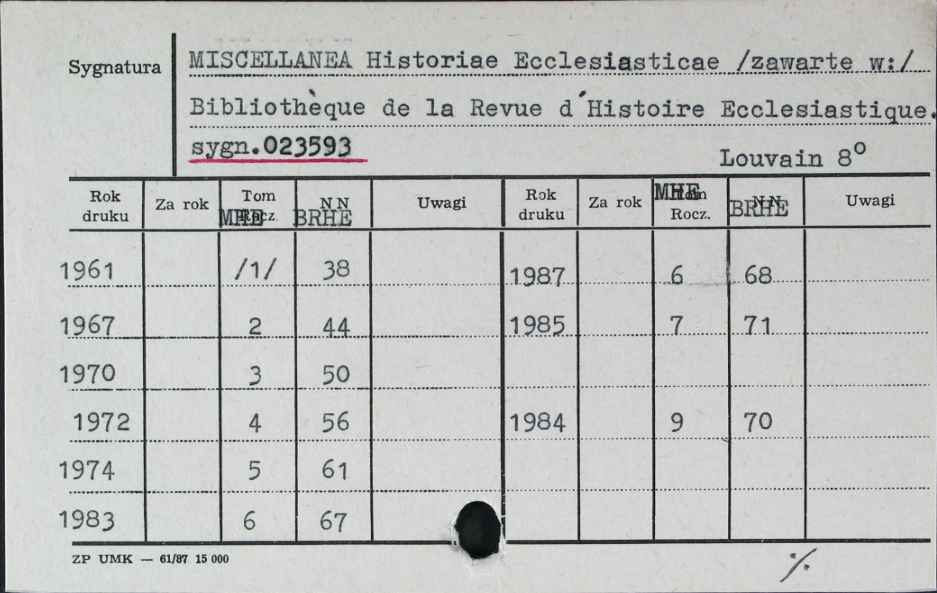 Sygnatura
MISCELLANEA Historiae Ecclesiasticae /zawarte w:/
Bibliothèque de la Revue d´Histoire Ecclesiastique.
sygn.023593
Louvain 8°
Rok druku Za rok Tom Rocz. MHE NN BRHE Uwagi Rok druku Za rok Tom Rocz. MHE NN BRHE Uwagi
1961 /1/ 38 1987 6 68
1967 2 44 1985 7 71
1970 3 50
1972 4 56 1984 9 70
1974 5 61
1983 6 67
ZP UMK — 61/87 15 000
%